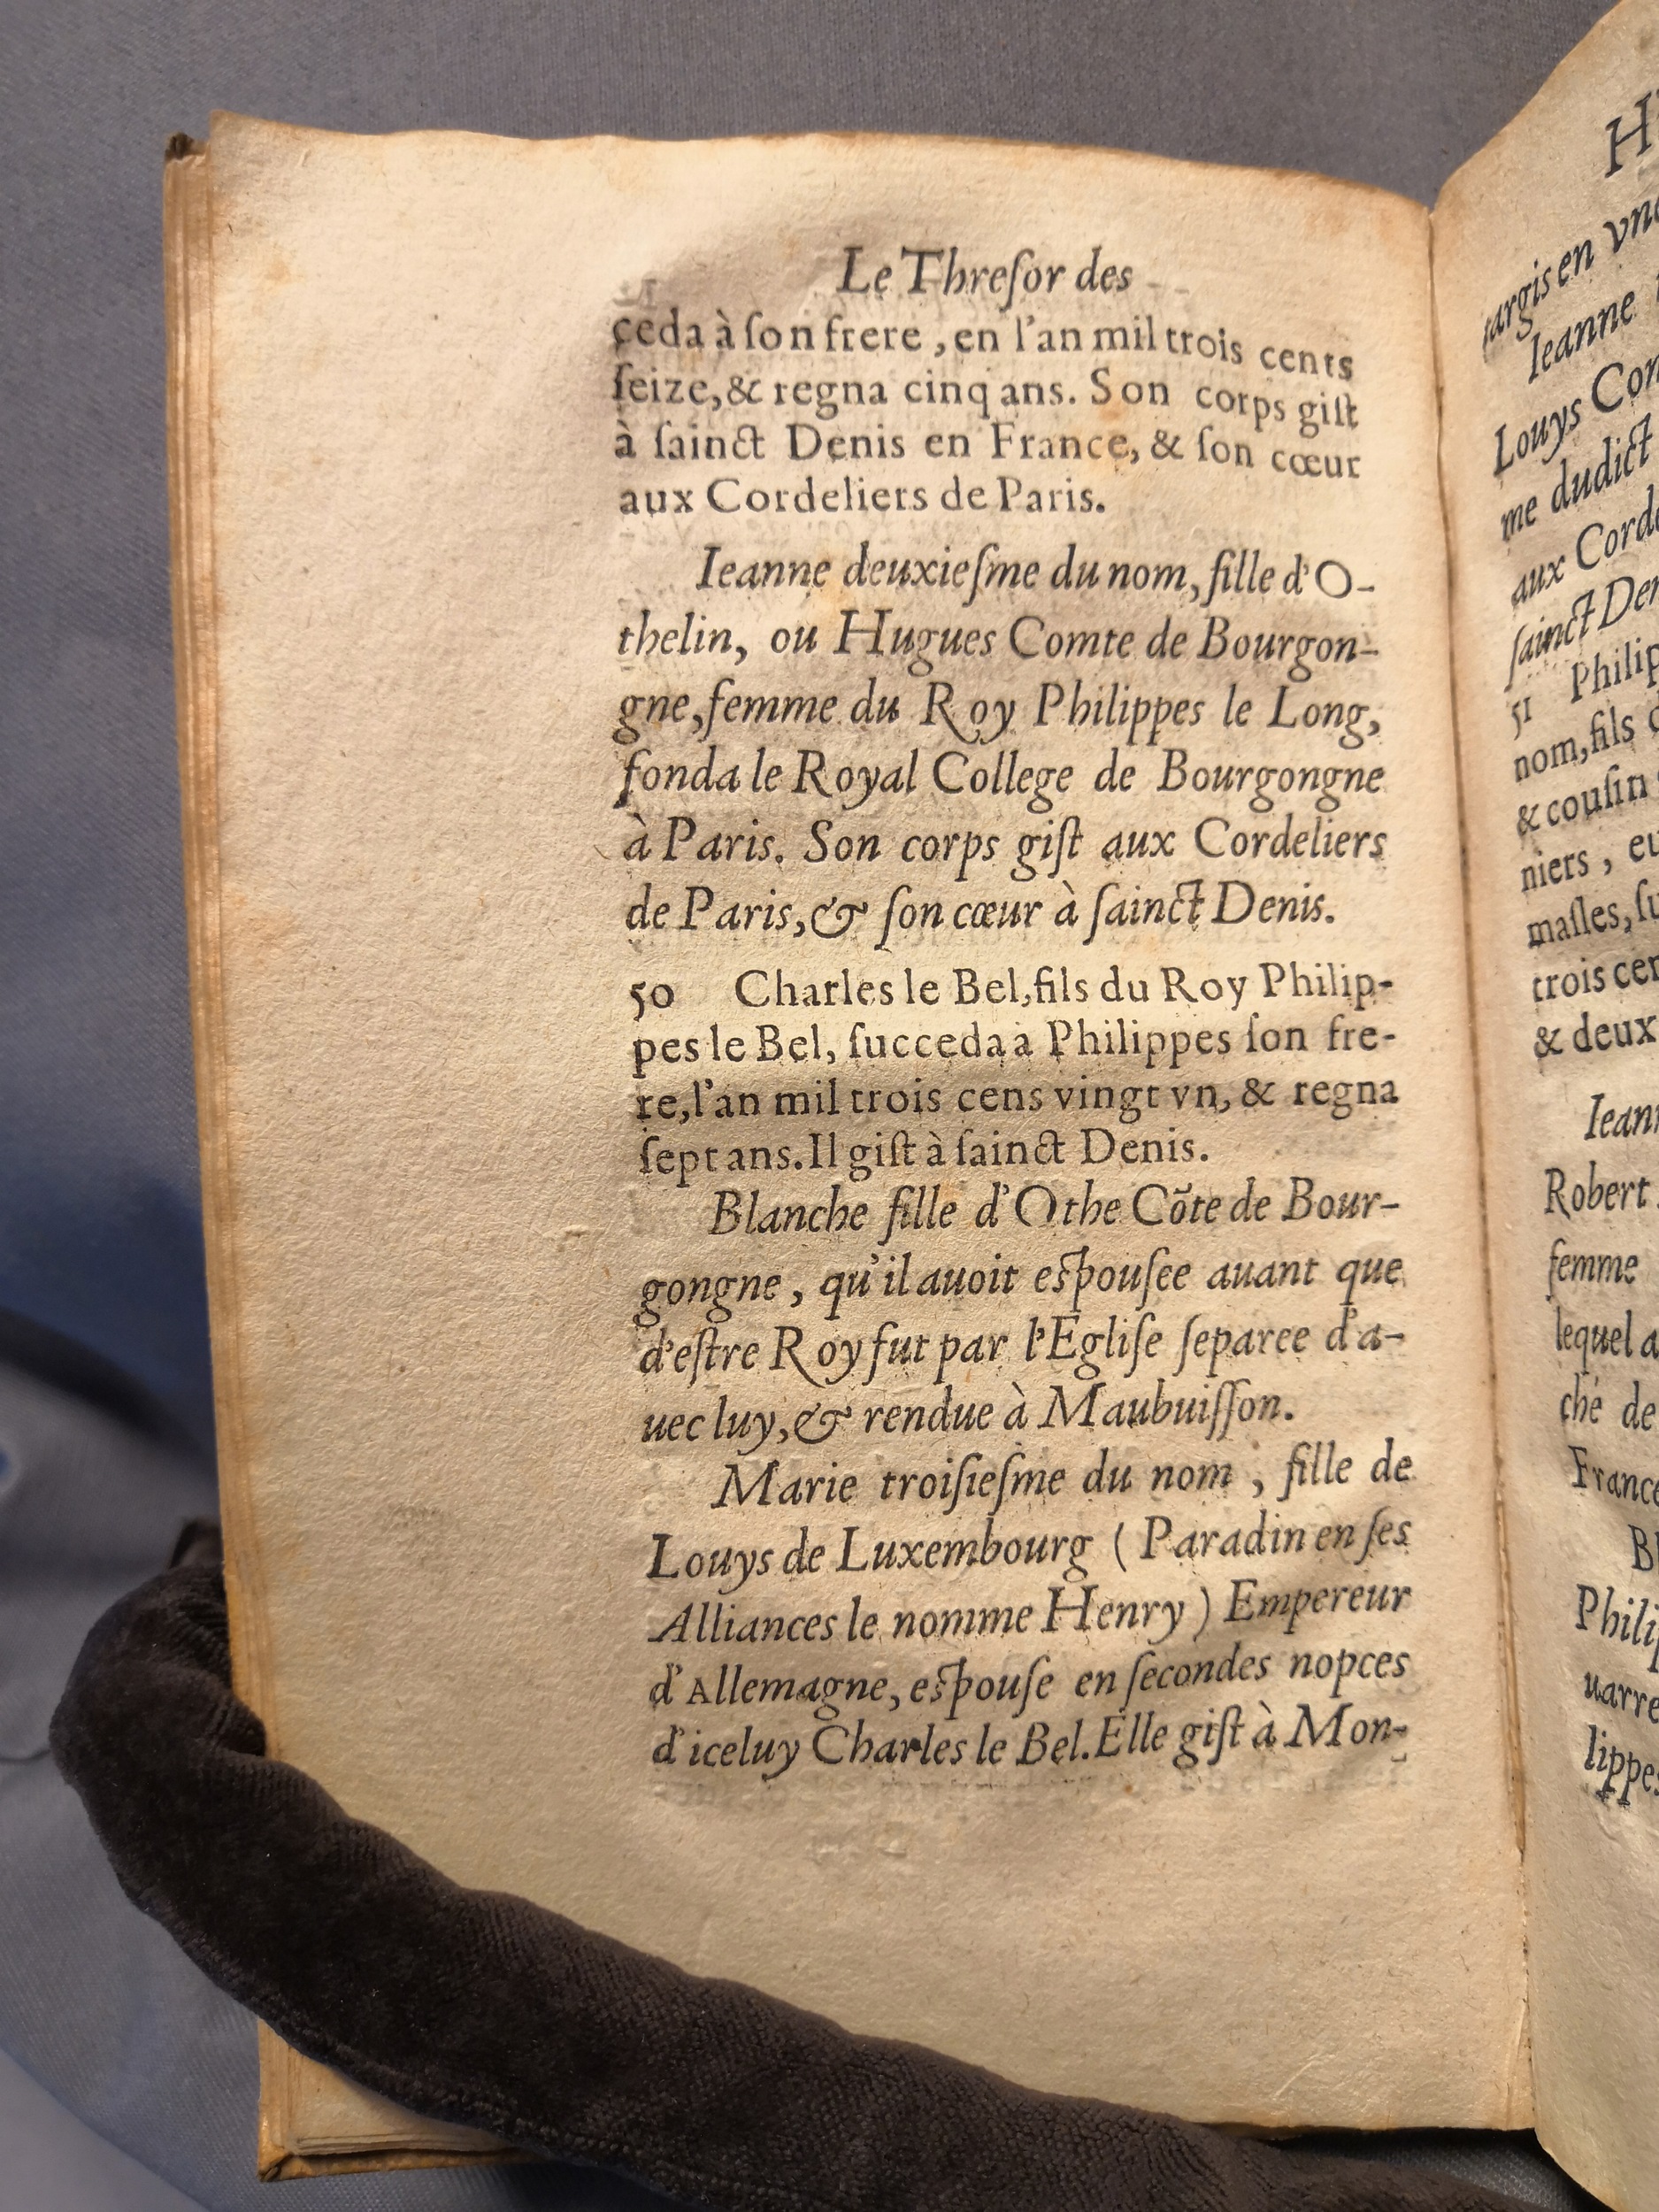 Le Threſor des
ceda à ſon frere, en l'an mil trois cents
ſeize, & regna cinq ans. Son corps giſt
à ſainct Denis en France, & ſon cœur
aux Cordeliers de Paris.
Ieanne deuxieſme du nom, fille d'O-
thelin, ou Hugues Comte de Bourgon-
gne, femme du Roy Philippes le Long,
fonda le Royal College de Bourgongne
à Paris. Son corps giſt aux Cordeliers
de Paris, & ſon cœur à ſainct Denis.
50 Charles le Bel, fils du Roy Philip-
pes le Bel, ſucceda à Philippes ſon fre-
re, l'an mil trois cens vingt vn, & regna
ſept ans. Il giſt à ſainct Denis.
Blanche fille d'Othe Cõte de Bour-
gongne, qu'il auoit eſpouſee auant que
d'eſtre Roy fut par l'Egliſe ſeparee d'a-
uec luy, & rendue à Maubuiſſon.
Marie troiſieſme du nom, fille de
Louys de Luxembourg (Paradin en ſes
Alliances le nomme Henry) Empereur
d'Allemagne, eſpouſe en ſecondes nopces
d'iceluy Charles le Bel. Elle giſt à Mon-
H
argis en vn
Ieanne
Louys Con
me dudict
aux Cord
ſainct Den
51 Philip
nom, fils
& couſin
niers, eu
maſles, ſu
trois cen
& deux
Iean
Robert
femme
lequel a
ché de
France
Bl
Phili
uarre
lippes